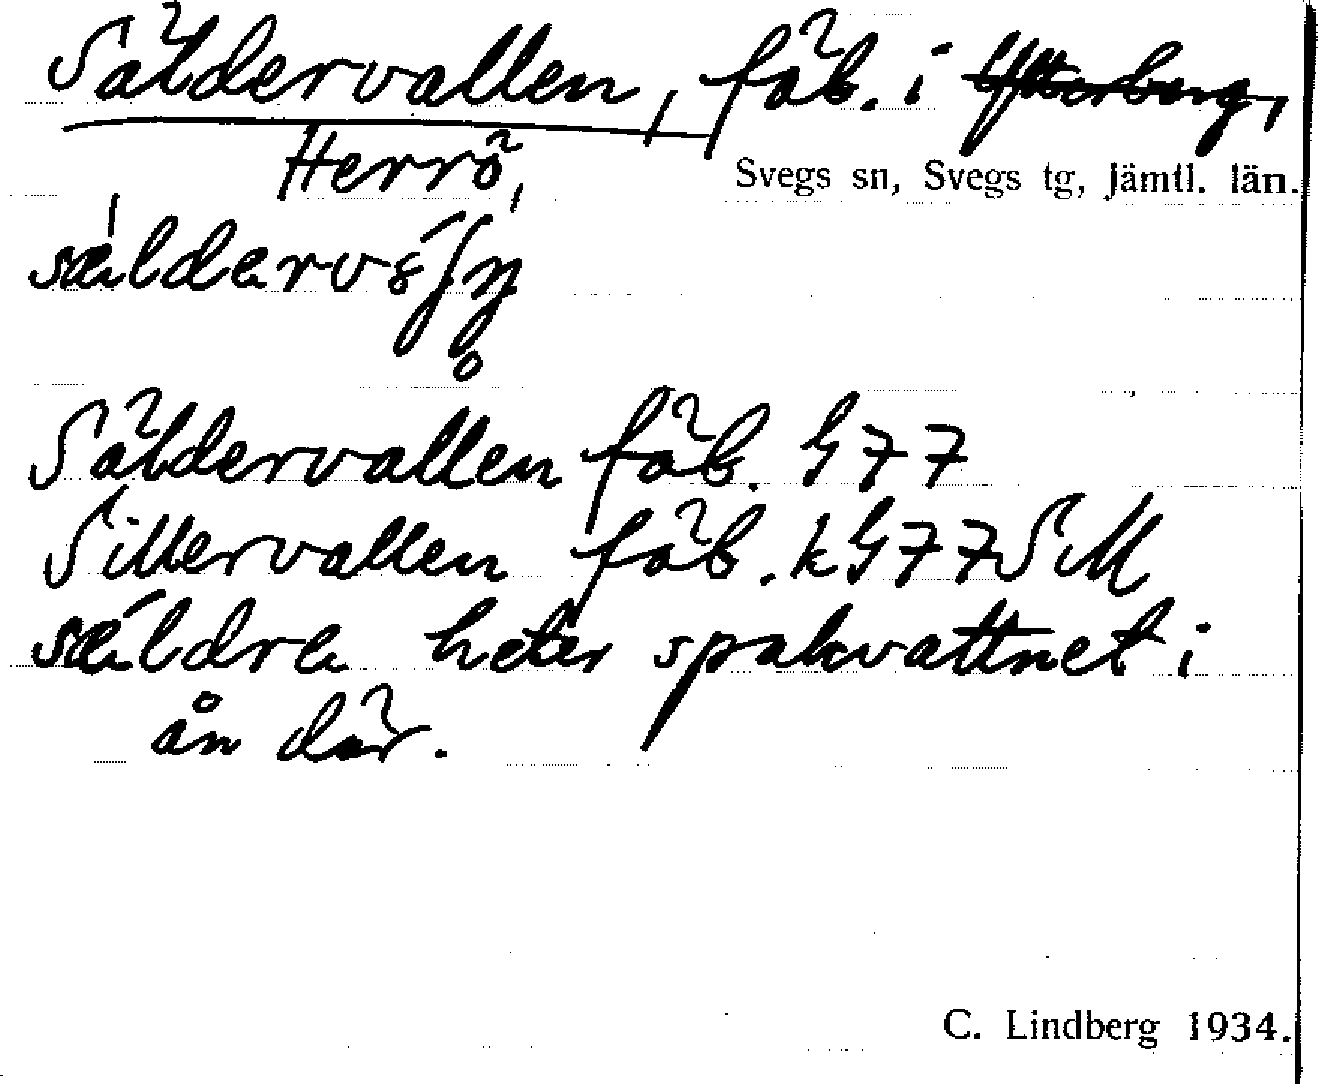 Säldervallen, fäb. i Ytterberg,
Herrö,
Svegs sn, Svegs tg, Jämtl. län.
Säldervallen fäb. G77
Sillervallen fäb. k G77 SM
sældra heter spakvattnet i
ån där.
C. Lindberg 1934.